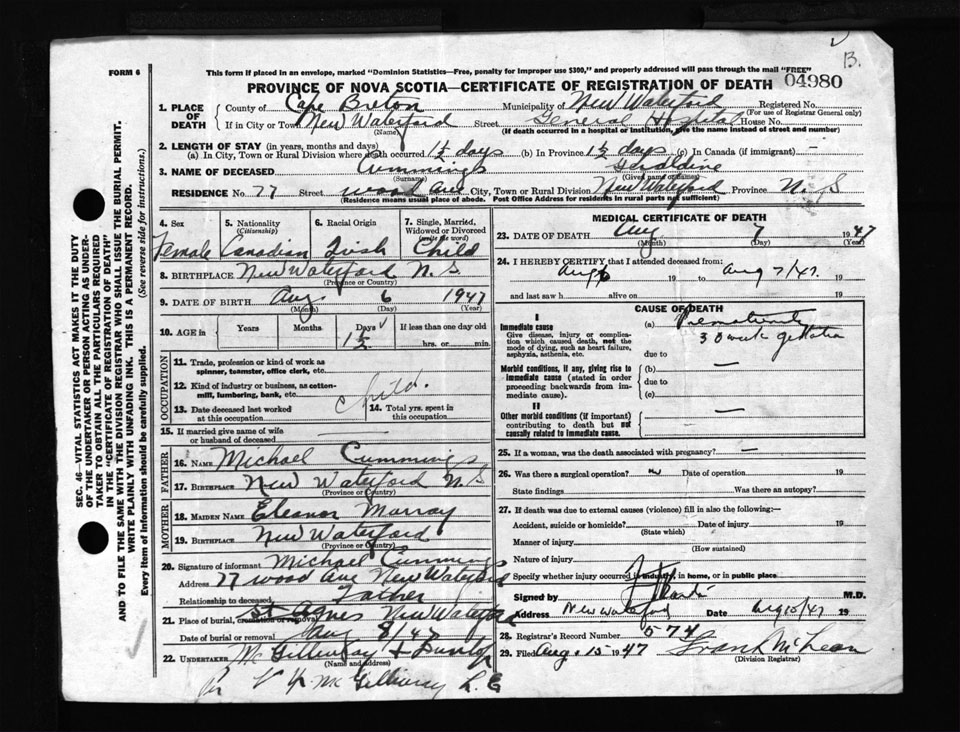 B.
FORM 6
This form if placed in an envelope, marked "Dominion Statistics—Free, penalty for improper use $300," and properly addressed will pass through the mail "FREE"
04980
PROVINCE OF NOVA SCOTIA—CERTIFICATE OF REGISTRATION OF DEATH
SEC. 46—VITAL STATISTICS ACT MAKES IT THE DUTY
OF THE UNDERTAKER OR PERSON ACTING AS UNDER-
TAKER TO OBTAIN ALL THE PARTICULARS REQUIRED
IN THE "CERTIFICATE OF REGISTRATION OF DEATH"
AND TO FILE THE SAME WITH THE DIVISION REGISTRAR WHO SHALL ISSUE THE BURIAL PERMIT.
WRITE PLAINLY WITH UNFADING INK. THIS IS A PERMANENT RECORD.
Every item of Information should be carefully supplied. (See reverse side for instructions.)
1. PLACE OF DEATH County of Cape Breton Municipality of New Waterford Registered No.
(For use of Registrar General only)
If in City or Town New Waterford Street General Hospital House No.
(Name) (If death occurred in a hospital or institution, give the name instead of street and number)
2. LENGTH OF STAY (in years, months and days)
(a) In City, Town or Rural Division where death occurred 1½ days (b) In Province 1½ days (c) In Canada (if immigrant) —
3. NAME OF DECEASED Cummings Geraldine
(Surname) (Given name or names)
RESIDENCE No. 77 Street Wood Ave City, Town or Rural Division New Waterford Province N.S
(Residence means usual place of abode. Post Office Address for residents in rural parts not sufficient)
4. Sex 5. Nationality (Citizenship) 6. Racial Origin 7. Single, Married, Widowed or Divorced (write the word)
Female Canadian Irish Child
8. BIRTHPLACE New Waterford N.S
(Province or Country)
9. DATE OF BIRTH Aug 6 1947
(Month) (Day) (Year)
10. AGE in Years Months Days If less than one day old
1½ hrs. or min.
OCCUPATION
11. Trade, profession or kind of work as spinner, teamster, office clerk, etc.
12. Kind of industry or business, as cotton-mill, lumbering, bank, etc.
child.
13. Date deceased last worked at this occupation
14. Total yrs. spent in this occupation
15. If married give name of wife or husband of deceased —
FATHER
16. NAME Michael Cummings
17. BIRTHPLACE New Waterford N.S
(Province or Country)
MOTHER
18. MAIDEN NAME Eleanor Murray
19. BIRTHPLACE New Waterford
(Province or Country)
20. Signature of informant Michael Cummings
Address 77 Wood Ave New Waterford
Relationship to deceased Father
21. Place of burial, cremation or removal St Agnes New Waterford
Date of burial or removal Aug 8/47
22. UNDERTAKER McGillivray + Dunlop
(Name and address)
McGillivray
MEDICAL CERTIFICATE OF DEATH
23. DATE OF DEATH Aug 7 1947
(Month) (Day) (Year)
24. I HEREBY CERTIFY that I attended deceased from:
Aug 6 19 to Aug 7/47. 19
and last saw h alive on 19
CAUSE OF DEATH
I
Immediate cause
Give disease, injury or complication which caused death, not the mode of dying, such as heart failure, asphyxia, asthenia, etc.
(a) Prematurity
30 week gestation
due to
Morbid conditions, if any, giving rise to immediate cause (stated in order proceeding backwards from immediate cause).
(b) —
due to
(c)
II
Other morbid conditions (if important) contributing to death but not causally related to immediate cause.
—
25. If a woman, was the death associated with pregnancy? —
26. Was there a surgical operation? Date of operation 19
State findings Was there an autopsy?
27. If death was due to external causes (violence) fill in also the following:—
Accident, suicide or homicide? Date of injury 19
(State which)
Manner of injury
(How sustained)
Nature of injury
Specify whether injury occurred in industry, in home, or in public place
Signed by M.D.
Address New Waterford Date Aug 10/47 19
28. Registrar's Record Number 574
29. Filed Aug. 15 1947 Frank McLean
(Division Registrar)